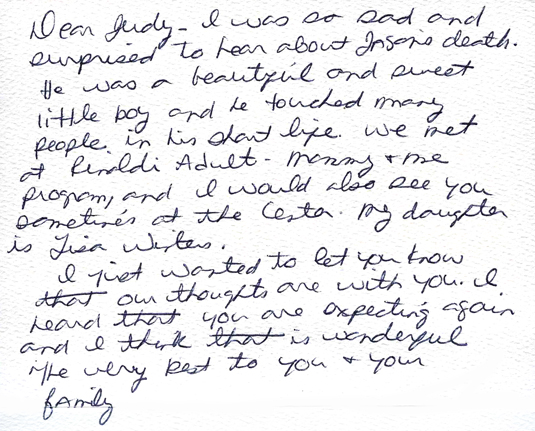 Dear Judy - I was so sad and
surprised to hear about Jason's death.
He was a beautiful and sweet
little boy and he touched many
people in his short life. We met
at Rinaldi Adult - mommy + me
program, and I would also see you
sometimes at the Center. My daughter
is Lisa
I just wanted to let you know
that our thoughts are with you. I
heard that you are expecting again
and I think that is wonderful
the very best to you + your
family